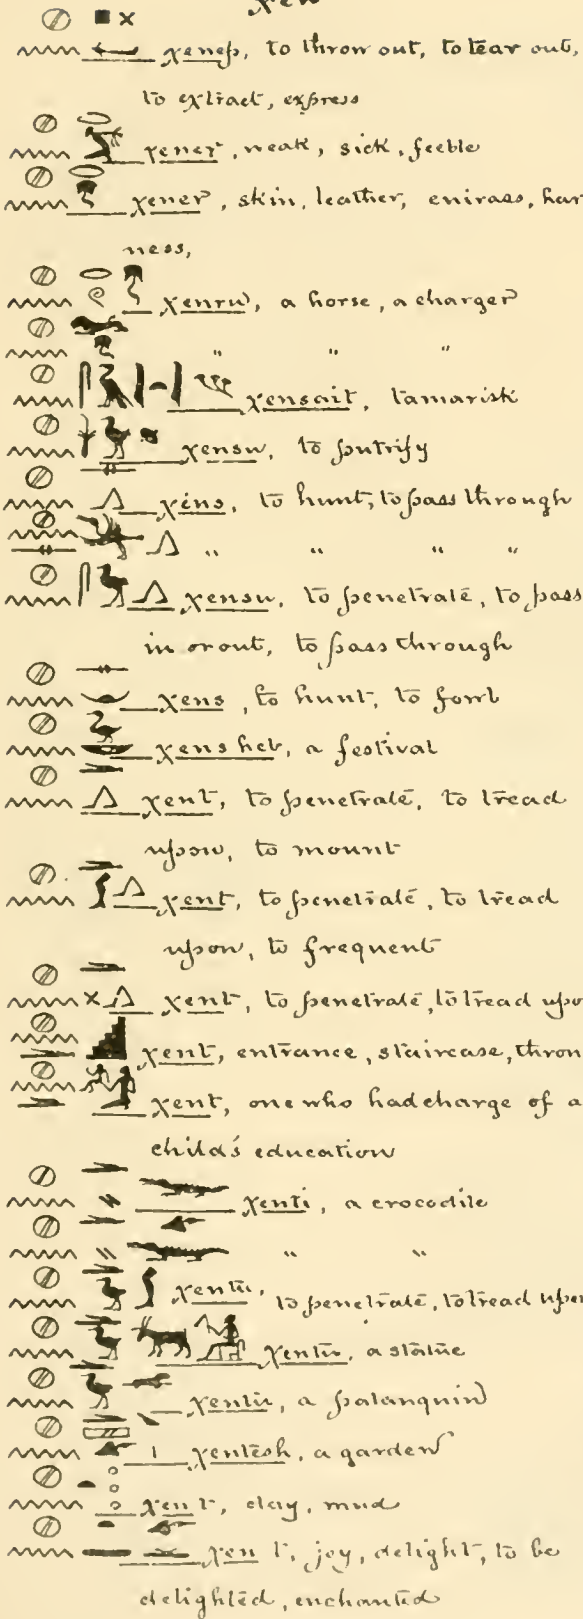 χen
χenep, to throw out, to tear out,
to extract, express
χener, weak, sick, feeble
χener, skin, leather, cuirass, har
ness,
χenru, a horse, a charger
" " "
χensait, tamarisk
χensu, to putrify
χens, to hunt, to pass through
" " " "
χensu, to penetrate, to pass
in or out, to pass through
χens, to hunt, to fowl
χens heb, a festival
χent, to penetrate, to tread
upon, to mount
χent, to penetrate, to tread
upon, to frequent
χent, to penetrate, to tread upo
χent, entrance, staircase, thron
χent, one who had charge of a
child's education
χenti, a crocodile
" "
χentu, to penetrate, to tread upon
χentu, a statue
χentu, a palanquin
χentesh, a garden
χen t, clay, mud
χen t, joy, delight, to be
delighted, enchanted